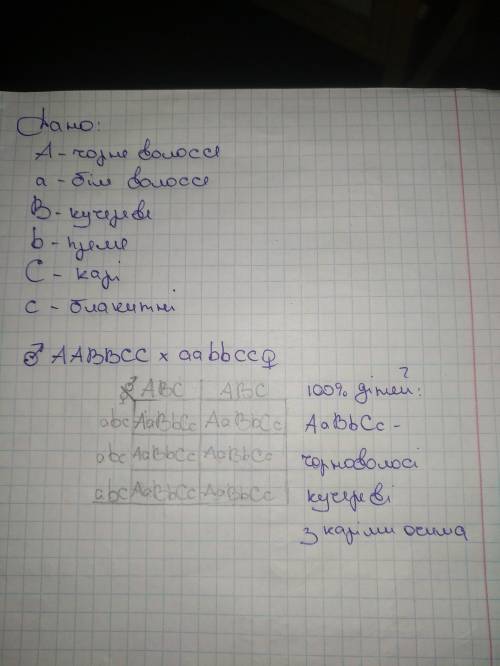 Дано:
А - чорне волосся
а - біле волосся
В - кучеряве
b - пряме
С - карі
с - блакитні
♂ ААВВСС × ааbbсс♀
♀ ♂ АВС АВС
abc AaBbCc AaBbCc
abc AaBbCc AaBbCc
abc AaBbCc AaBbCc
?
100% дітей:
АаВbСс -
чорноволосі
кучеряві
з карими очима